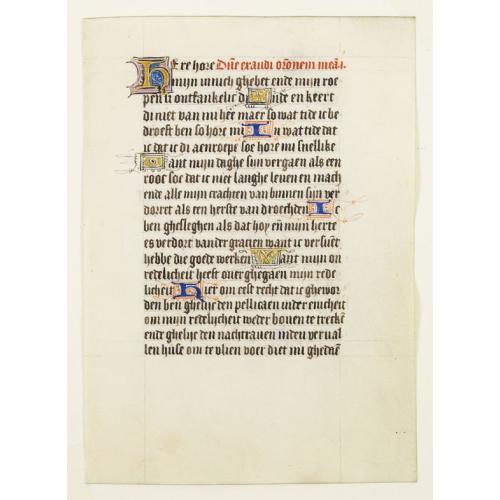 Here hore Dn̄e exaudi or̄onem meā.
mijn innich ghebet ende mijn roe
pen u ontfankelic di Ende en keert
di niet van mi hēe maer so wat tide ic be
droeft ben so hore mi In wat tide dat
ic dat ic di aenroepe soe hore mi snellike
Want mijn daghe sijn vergaen als een
rooc soe dat ic niet langhe leuen en mach
ende alle mijn crachten van binnen sijn ver
dorret als een herfte van droechden Ic
ben ghesleghen als dat hoy en̄ mijn herte
es verdort vander gracien want ic versūt
hebbe die goede werken Want mijn on
redelicheit heeft ouer ghegaen mijn rede
licheit Hier om eest recht dat ic ghewor
den ben ghelijc den pellicaen inder enicheit
om mijn redelijcheit weder bouen te treckē
ende ghelijc den nachtrauen inden veruал
len huse om te vlien voer diet mi ghedaē